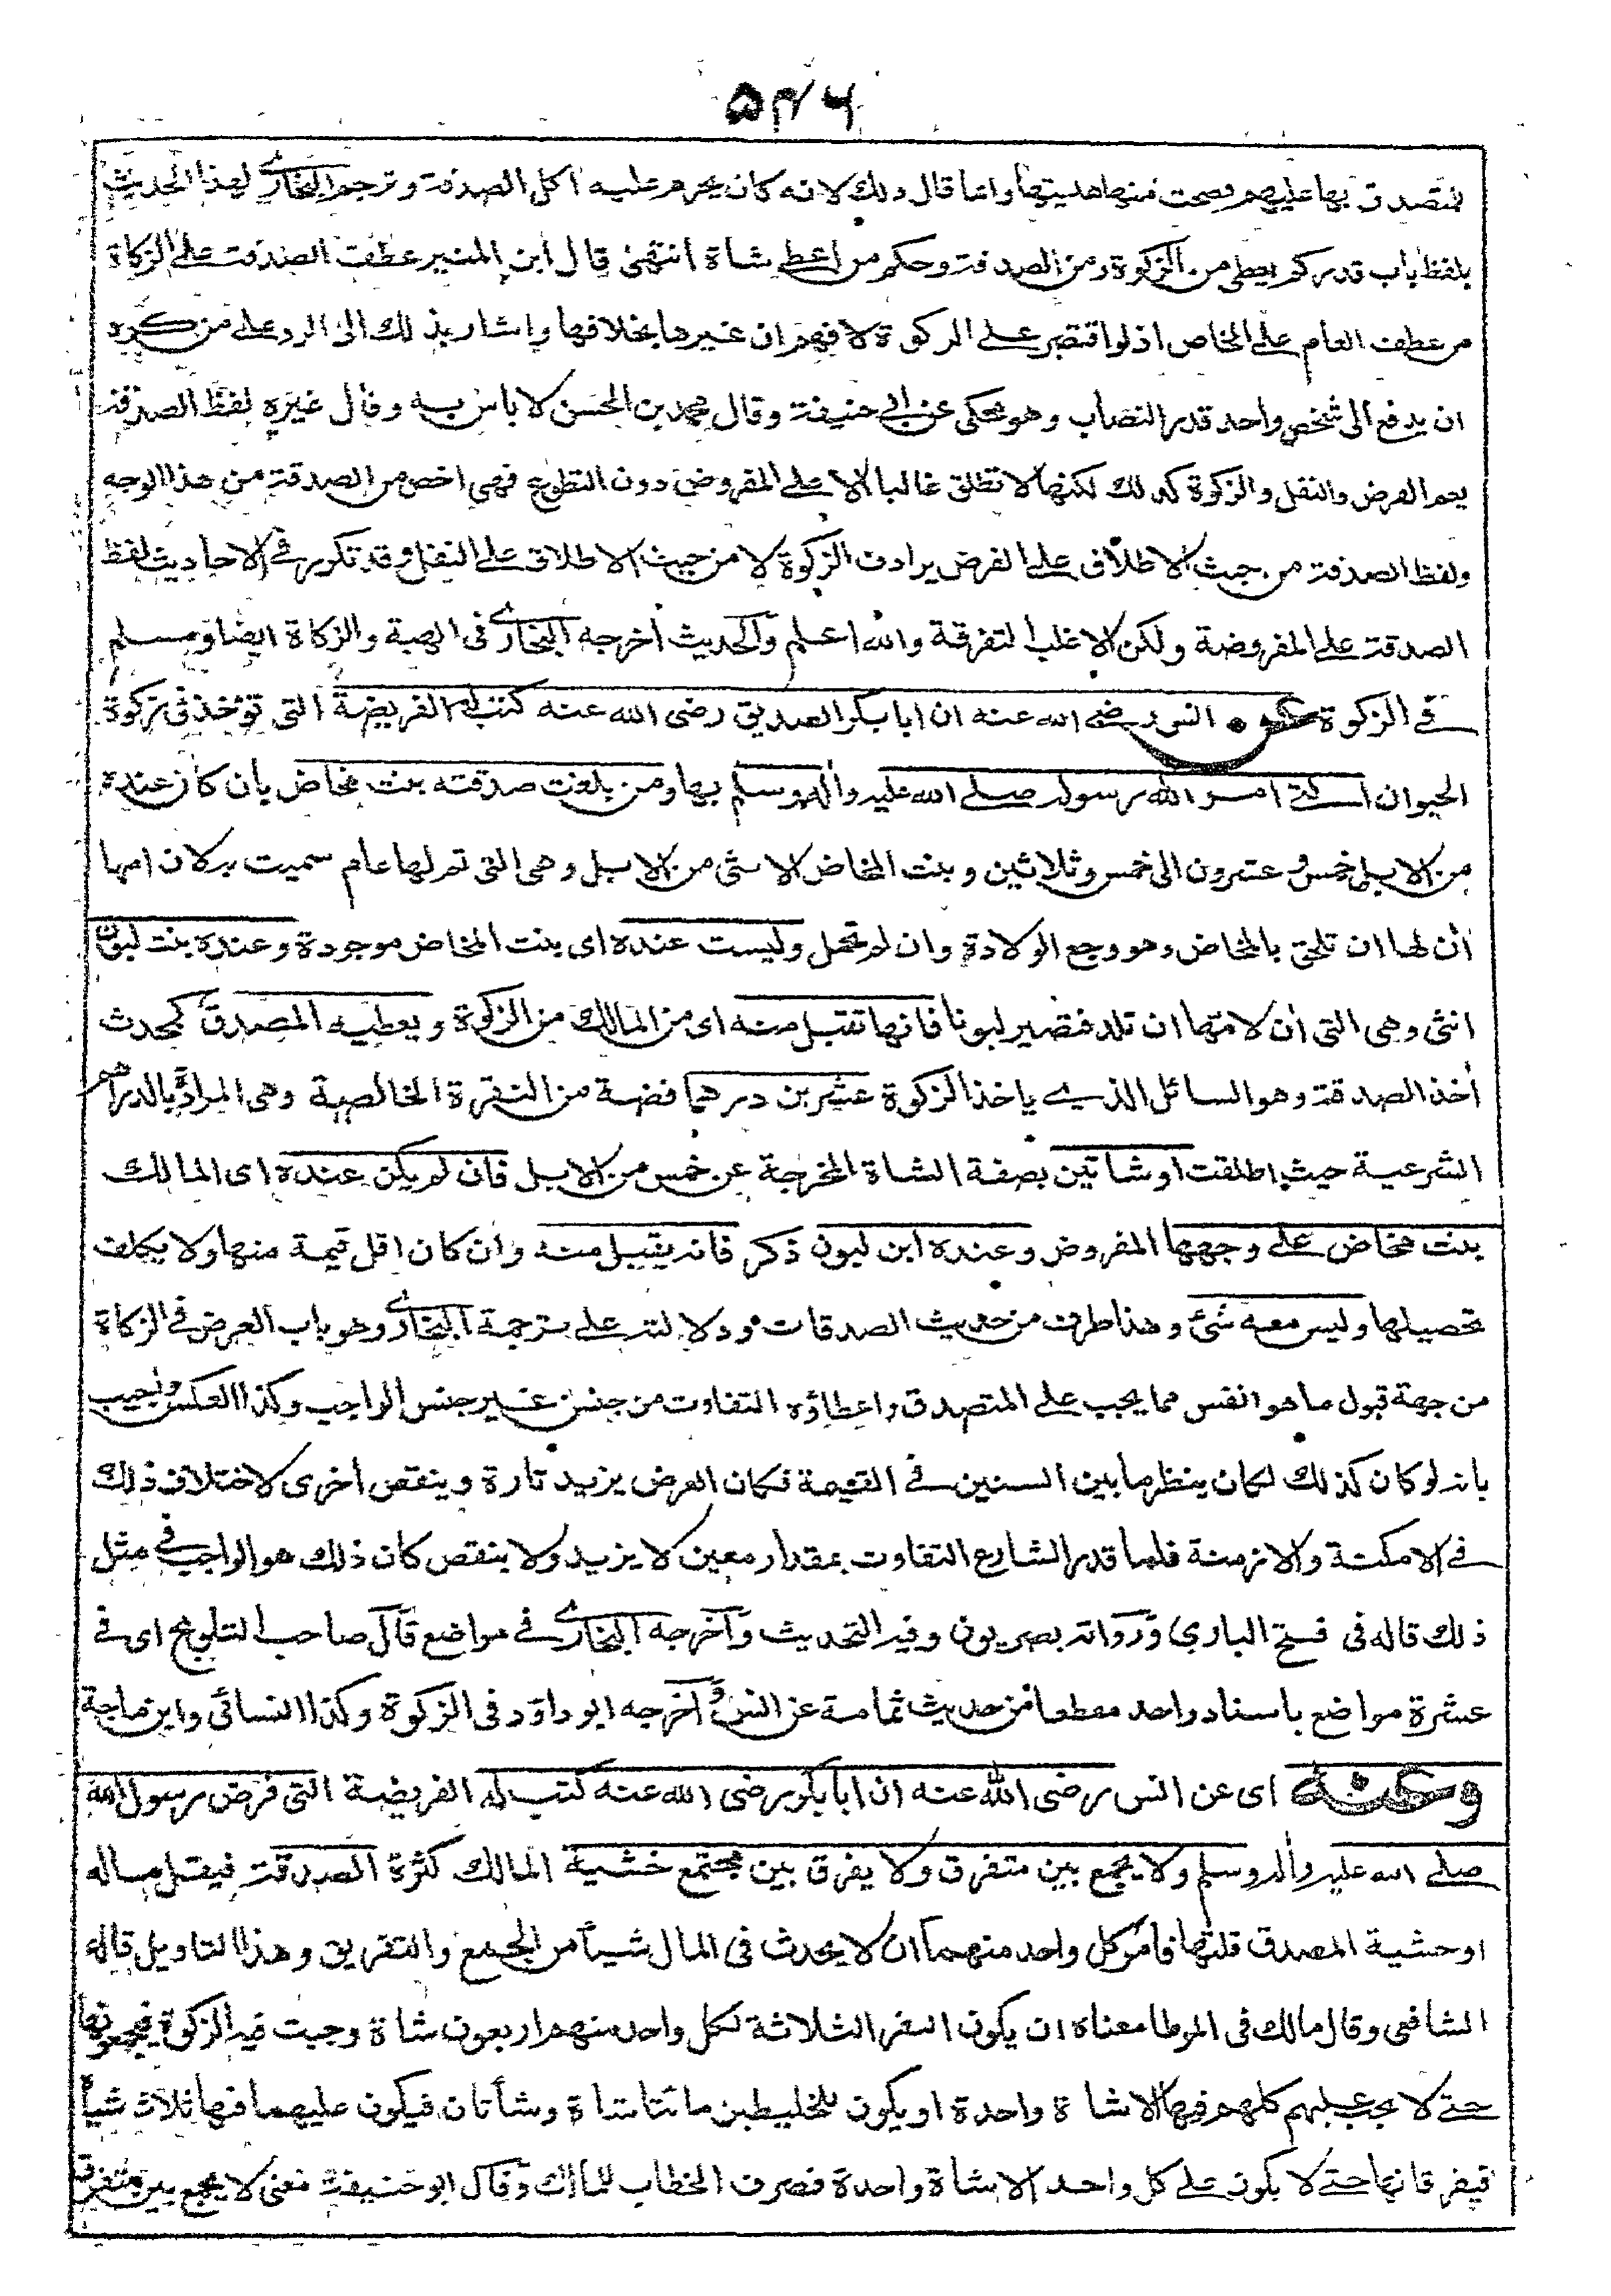 ۵۴۶
للتصدق بها عليهم فصحت منها هديتها وانما قال ذلك لانه كان يحرم عليه اكل الصدقة وترجم البخاري لهذا الحديث
بلفظ باب قدر كم يعطى من الزكوة ومن الصدقة وحكم من اعطى شاة انتهى قال ابن المنير عطف الصدقة على الزكاة
من عطف العام على الخاص اذ لو اقتصر على الزكوة لافهم ان غيرها بخلافها واشار بذلك الى الرد على من كره
ان يدفع الى شخص واحد قدر النصاب وهو محكى عن ابي حنيفة وقال محمد بن الحسن لا باس به وقال غيره لفظ الصدقة
يعم الفرض والنفل والزكوة كذلك لكنها لا تطلق غالبا الا على المفروض دون التطوع فهي اخص من الصدقة من هذا الوجه
ولفظ الصدقة من حيث الاطلاق على الفرض يرادف الزكوة لا من حيث الاطلاق على النفل وقد تكرر في الاحاديث لفظ
الصدقة على المفروضة ولكن الاغلب التفرقة والله اعلم والحديث اخرجه البخاري فى الهبة والزكاة ايضا ومسلم
في الزكوة عن انس رضى الله عنه ان ابا بكر الصديق رضى الله عنه كتب له الفريضة التى تؤخذ فى زكوة
الحيوان التي امر الله رسوله صلى الله عليه وآله وسلم بها ومن بلغت صدقته بنت مخاض بان كان عنده
من الابل خمس وعشرون الى خمس وثلاثين وبنت المخاض الانثى من الابل وهى التى تم لها عام سميت به لان امها
آن لها ان تلحق بالمخاض وهو وجع الولادة وان لم تحمل وليست عنده اى بنت المخاض موجودة وعنده بنت لبون
انثى وهى التى آن لامها ان تلد فتصير لبونا فانها تقبل منه اى من المالك من الزكوة ويعطيه المصدق كمحدث
آخذ الصدقة وهو السائل الذي ياخذ الزكوة عشرين درهما فضة من النقرة الخالصة وهى المراد بالدراهم
الشرعية حيث اطلقت او شاتين بصفة الشاة المخرجة عن خمس من الابل فان لم يكن عنده اى المالك
بنت مخاض على وجهها المفروض وعنده ابن لبون ذكر فانه يقبل منه وان كان اقل قيمة منها ولا يكلف
تحصيلها وليس معه شئ وهذا طرف من حديث الصدقات ودلالته على ترجمة البخاري وهو باب العرض في الزكاة
من جهة قبول ما هو انفس مما يجب على المتصدق واعطاؤه التفاوت من جنس غير جنس الواجب وكذا العكس واجيب
بانه لو كان كذلك لكان ينظر ما بين السنين في القيمة فكان العرض يزيد تارة وينقص اخرى لاختلاف ذلك
في الامكنة والازمنة فلما قدر الشارع التفاوت بمقدار معين لا يزيد ولا ينقص كان ذلك هو الواجب في مثل
ذلك قاله فى فتح الباري ورواته بصريون وفيه التحديث وآخرجه البخاري في مواضع قال صاحب التلويح اى فى
عشرة مواضع باسناد واحد مقطعا من حديث ثمامة عن انس وآخرجه ابو داود فى الزكوة وكذا النسائى وابن ماجة
وعنه اى عن انس رضى الله عنه ان ابا بكر رضى الله عنه كتب له الفريضة التى فرض رسول الله
صلى الله عليه وآله وسلم ولا يجمع بين متفرق ولا يفرق بين مجتمع خشية المالك كثرة الصدقة فيقل ماله
او خشية المصدق قلتها فامر كل واحد منهما ان لا يحدث فى المال شيئا من الجمع والتفريق وهذا التاويل قاله
الشافعى وقال مالك فى الموطا معناه ان يكون النفر الثلاثة لكل واحد منهم اربعون شاة وجبت فيه الزكوة فيجمعونها
حتى لا يجب عليهم كلهم فيها الا شاة واحدة او يكون للخليطين مائتا شاة وشاتان فيكون عليهما فيها ثلاث شياه
فيفرقانها حتى لا يكون على كل واحد الا شاة واحدة فصرف الخطاب للمالك وقال ابو حنيفة معنى لا يجمع بين متفرق